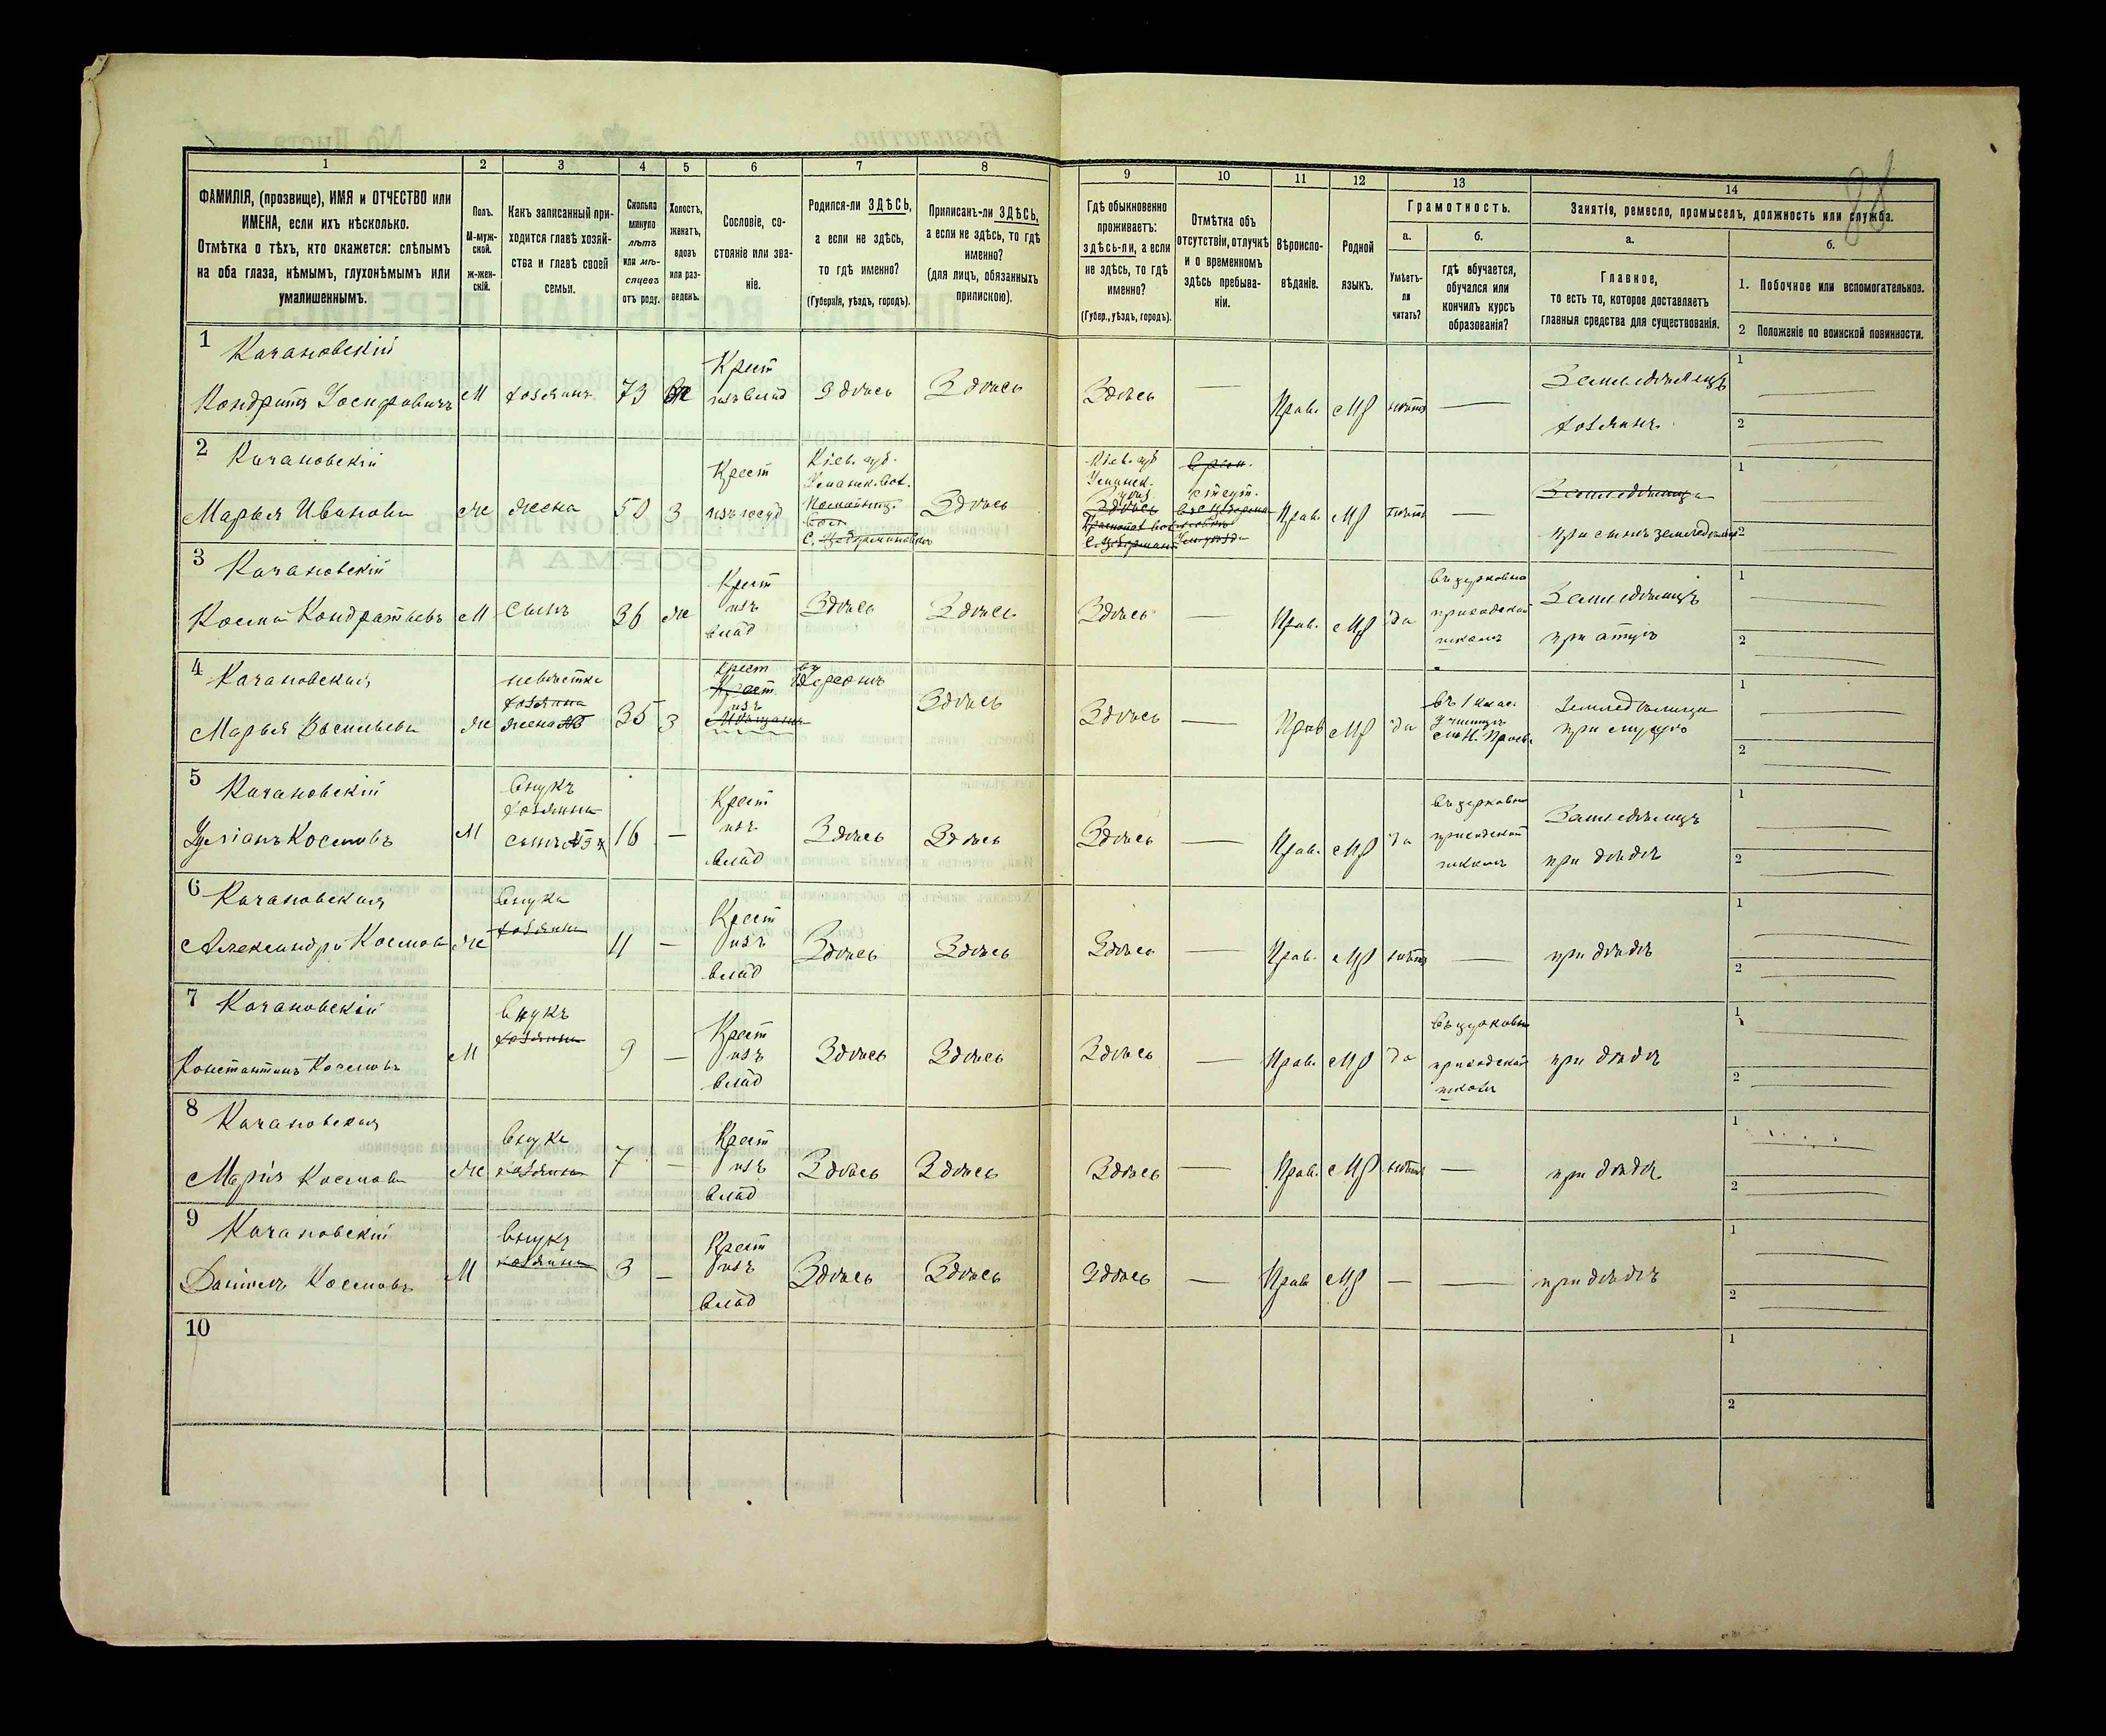 88
1 2 3 4 5 6 7 8 9 10 11 12 13 14
ФАМИЛІЯ, (прозвище), ИМЯ и ОТЧЕСТВО или
ИМЕНА, если ихъ нѣсколько.
Отмѣтка о тѣхъ, кто окажется: слѣпымъ
на оба глаза, нѣмымъ, глухонѣмымъ или
умалишеннымъ.
Полъ.
М-муж-
ской.
Ж-жен-
скій.
Какъ записанный при-
ходится главѣ хозяй-
ства и главѣ своей
семьи.
Сколько
минуло
лѣтъ
или мѣ-
сяцевъ
отъ роду.
Холостъ,
женатъ,
вдовъ
или раз-
веденъ.
Сословіе, со-
стояніе или зва-
ніе.
Родился-ли ЗДѢСЬ,
а если не здѣсь,
то гдѣ именно?
(Губернія, уѣздъ, городъ).
Приписанъ-ли ЗДѢСЬ,
а если не здѣсь, то гдѣ
именно?
(для лицъ, обязанныхъ
припискою).
Гдѣ обыкновенно
проживаетъ:
здѣсь-ли, а если
не здѣсь, то гдѣ
именно?
(Губер., уѣздъ, городъ).
Отмѣтка объ
отсутствіи, отлучкѣ
и о временномъ
здѣсь пребыва-
ніи.
Вѣроиспо-
вѣданіе.
Родной
языкъ.
Грамотность.
а.
Умѣетъ-
ли
читать?
б.
гдѣ обучается,
обучался или
кончилъ курсъ
образованія?
Занятія, ремесло, промыселъ, должность или служба.
а.
Главное,
то есть то, которое доставляетъ
главныя средства для существованія.
б.
1. Побочное или вспомогательное.
2 Положеніе по воинской повинности.
1 Качановскій
Кондратъ Іосифовичъ М хозяинъ 73 Крест
изъ влад Здѣсь Здѣсь Здѣсь — Прав. МР нѣтъ — Земледѣлецъ
хозяинъ
1
2
2 Качановскій
Марья Иванова Ж жена 50 З Крест
Кіев. губ.
Здѣсь
Кіев. губ
Здѣсь
Прав. МР нѣтъ —
при сынѣ земледѣлецъ
1
2
3 Качановскій
Косма Кондратьевъ М сынъ 36 Ж Крест
изъ
влад Здѣсь Здѣсь Здѣсь — Прав. МР да въ церковно
приходской
школѣ
Земледѣлецъ
при отцѣ
1
2
4 Качановская
Марья Васильева Ж невѣстка
хозяина
жена 35 З Крест
Крест
изъ
Здѣсь Здѣсь — Прав МР да въ 1 клас.
Земледѣлица
при мужѣ
1
2
5 Качановскій
Космовъ М внукъ
хозяина
сынъ 16 — Крест
изъ
влад Здѣсь Здѣсь Здѣсь — Прав. МР да въ церковно
приходской
школѣ
Земледѣлецъ
при дѣдѣ
1
2
6 Качановская
Александра Космова Ж внука
хозяина — Крест
изъ
влад Здѣсь Здѣсь Здѣсь — Прав. МР нѣтъ — при дѣдѣ
1
2
7 Качановскій
Константинъ Космовъ М внукъ
хозяина 9 — Крест
изъ
влад Здѣсь Здѣсь Здѣсь — Прав. МР да въ церковно
приходской
школѣ
при дѣдѣ
1
2
8 Качановская
Марія Космова Ж внука
хозяина 7 — Крест
изъ
влад Здѣсь Здѣсь Здѣсь — Прав. МР нѣтъ — при дѣдѣ
1
2
9 Качановскій
Даніилъ Космовъ М внукъ
хозяина 3 — Крест
изъ
влад Здѣсь Здѣсь Здѣсь — Прав МР — — при дѣдѣ
1
2
10
1
2